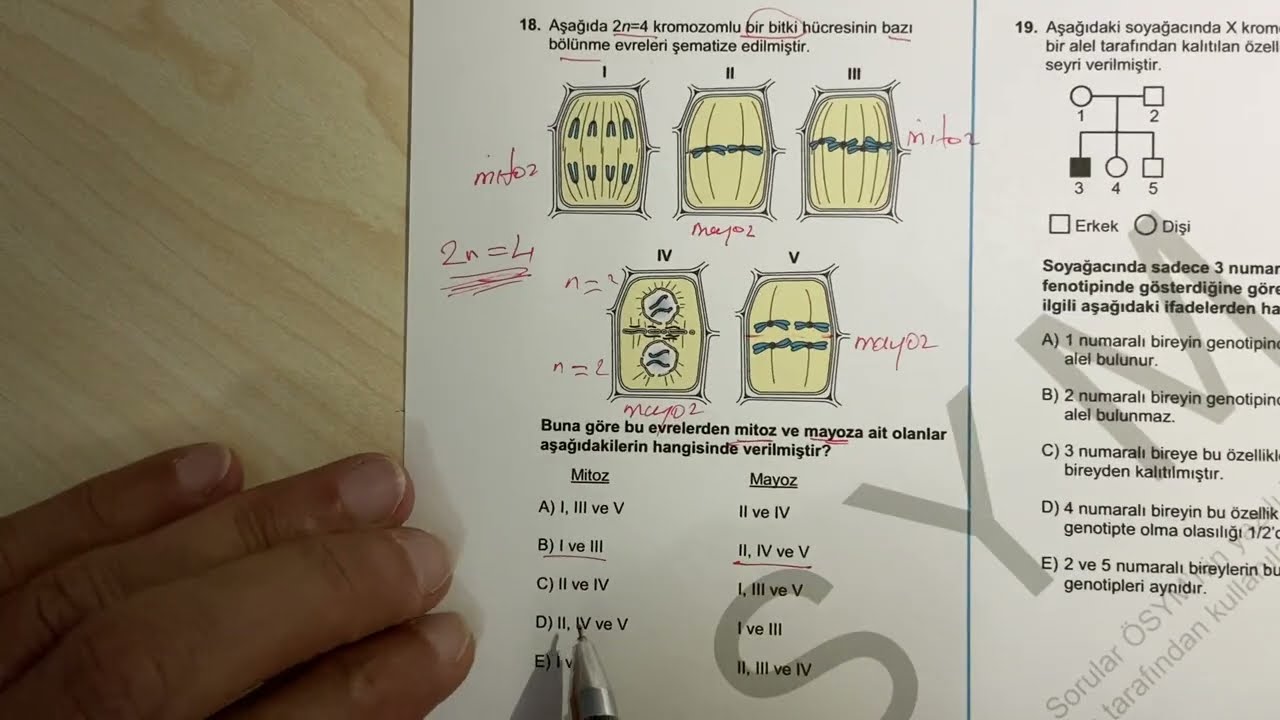 18. Aşağıda 2n=4 kromozomlu bir bitki hücresinin bazı
bölünme evreleri şematize edilmiştir.
I
II
III
mitoz
mitoz
mayoz
2n=4
IV
V
n=2
n=2
mayoz
mayoz
Buna göre bu evrelerden mitoz ve mayoza ait olanlar
aşağıdakilerin hangisinde verilmiştir?
Mitoz Mayoz
A) I, III ve V II ve IV
B) I ve III II, IV ve V
C) II ve IV I, III ve V
D) II, IV ve V I ve III
E) I v II, III ve IV
19. Aşağıdaki soyağacında X krom
bir alel tarafından kalıtılan özell
seyri verilmiştir.
1
2
3
4
5
Erkek Dişi
Soyağacında sadece 3 numar
fenotipinde gösterdiğine göre
ilgili aşağıdaki ifadelerden ha
A) 1 numaralı bireyin genotipind
alel bulunur.
B) 2 numaralı bireyin genotipind
alel bulunmaz.
C) 3 numaralı bireye bu özellikle
bireyden kalıtılmıştır.
D) 4 numaralı bireyin bu özellik
genotipte olma olasılığı 1/2'd
E) 2 ve 5 numaralı bireylerin bu
genotipleri aynıdır.
S Y M
Sorular ÖSYM'nin
tarafından kullan